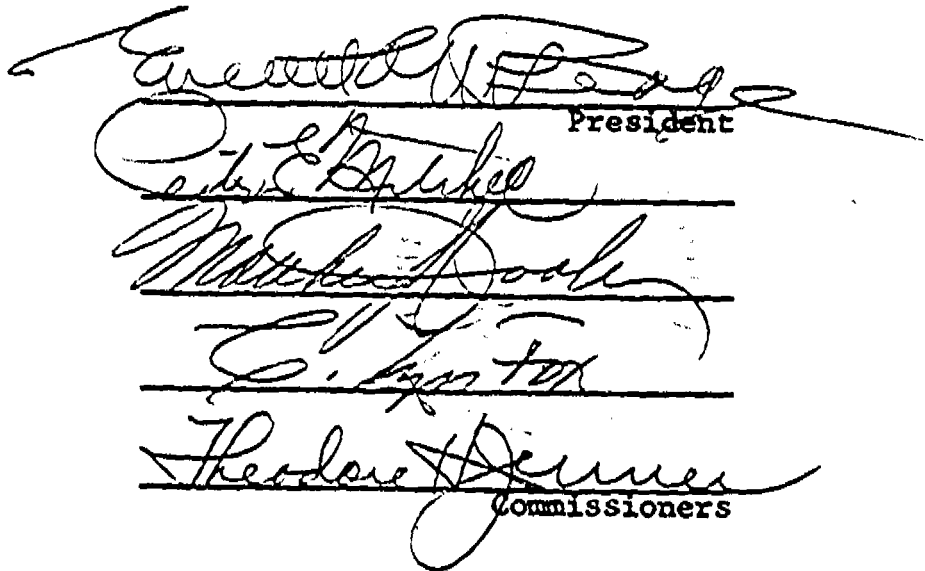 Everett
President
E. Mitchell
Matthew Dooley
C. Lyn Fox
Theodore H Jenner
Commissioners